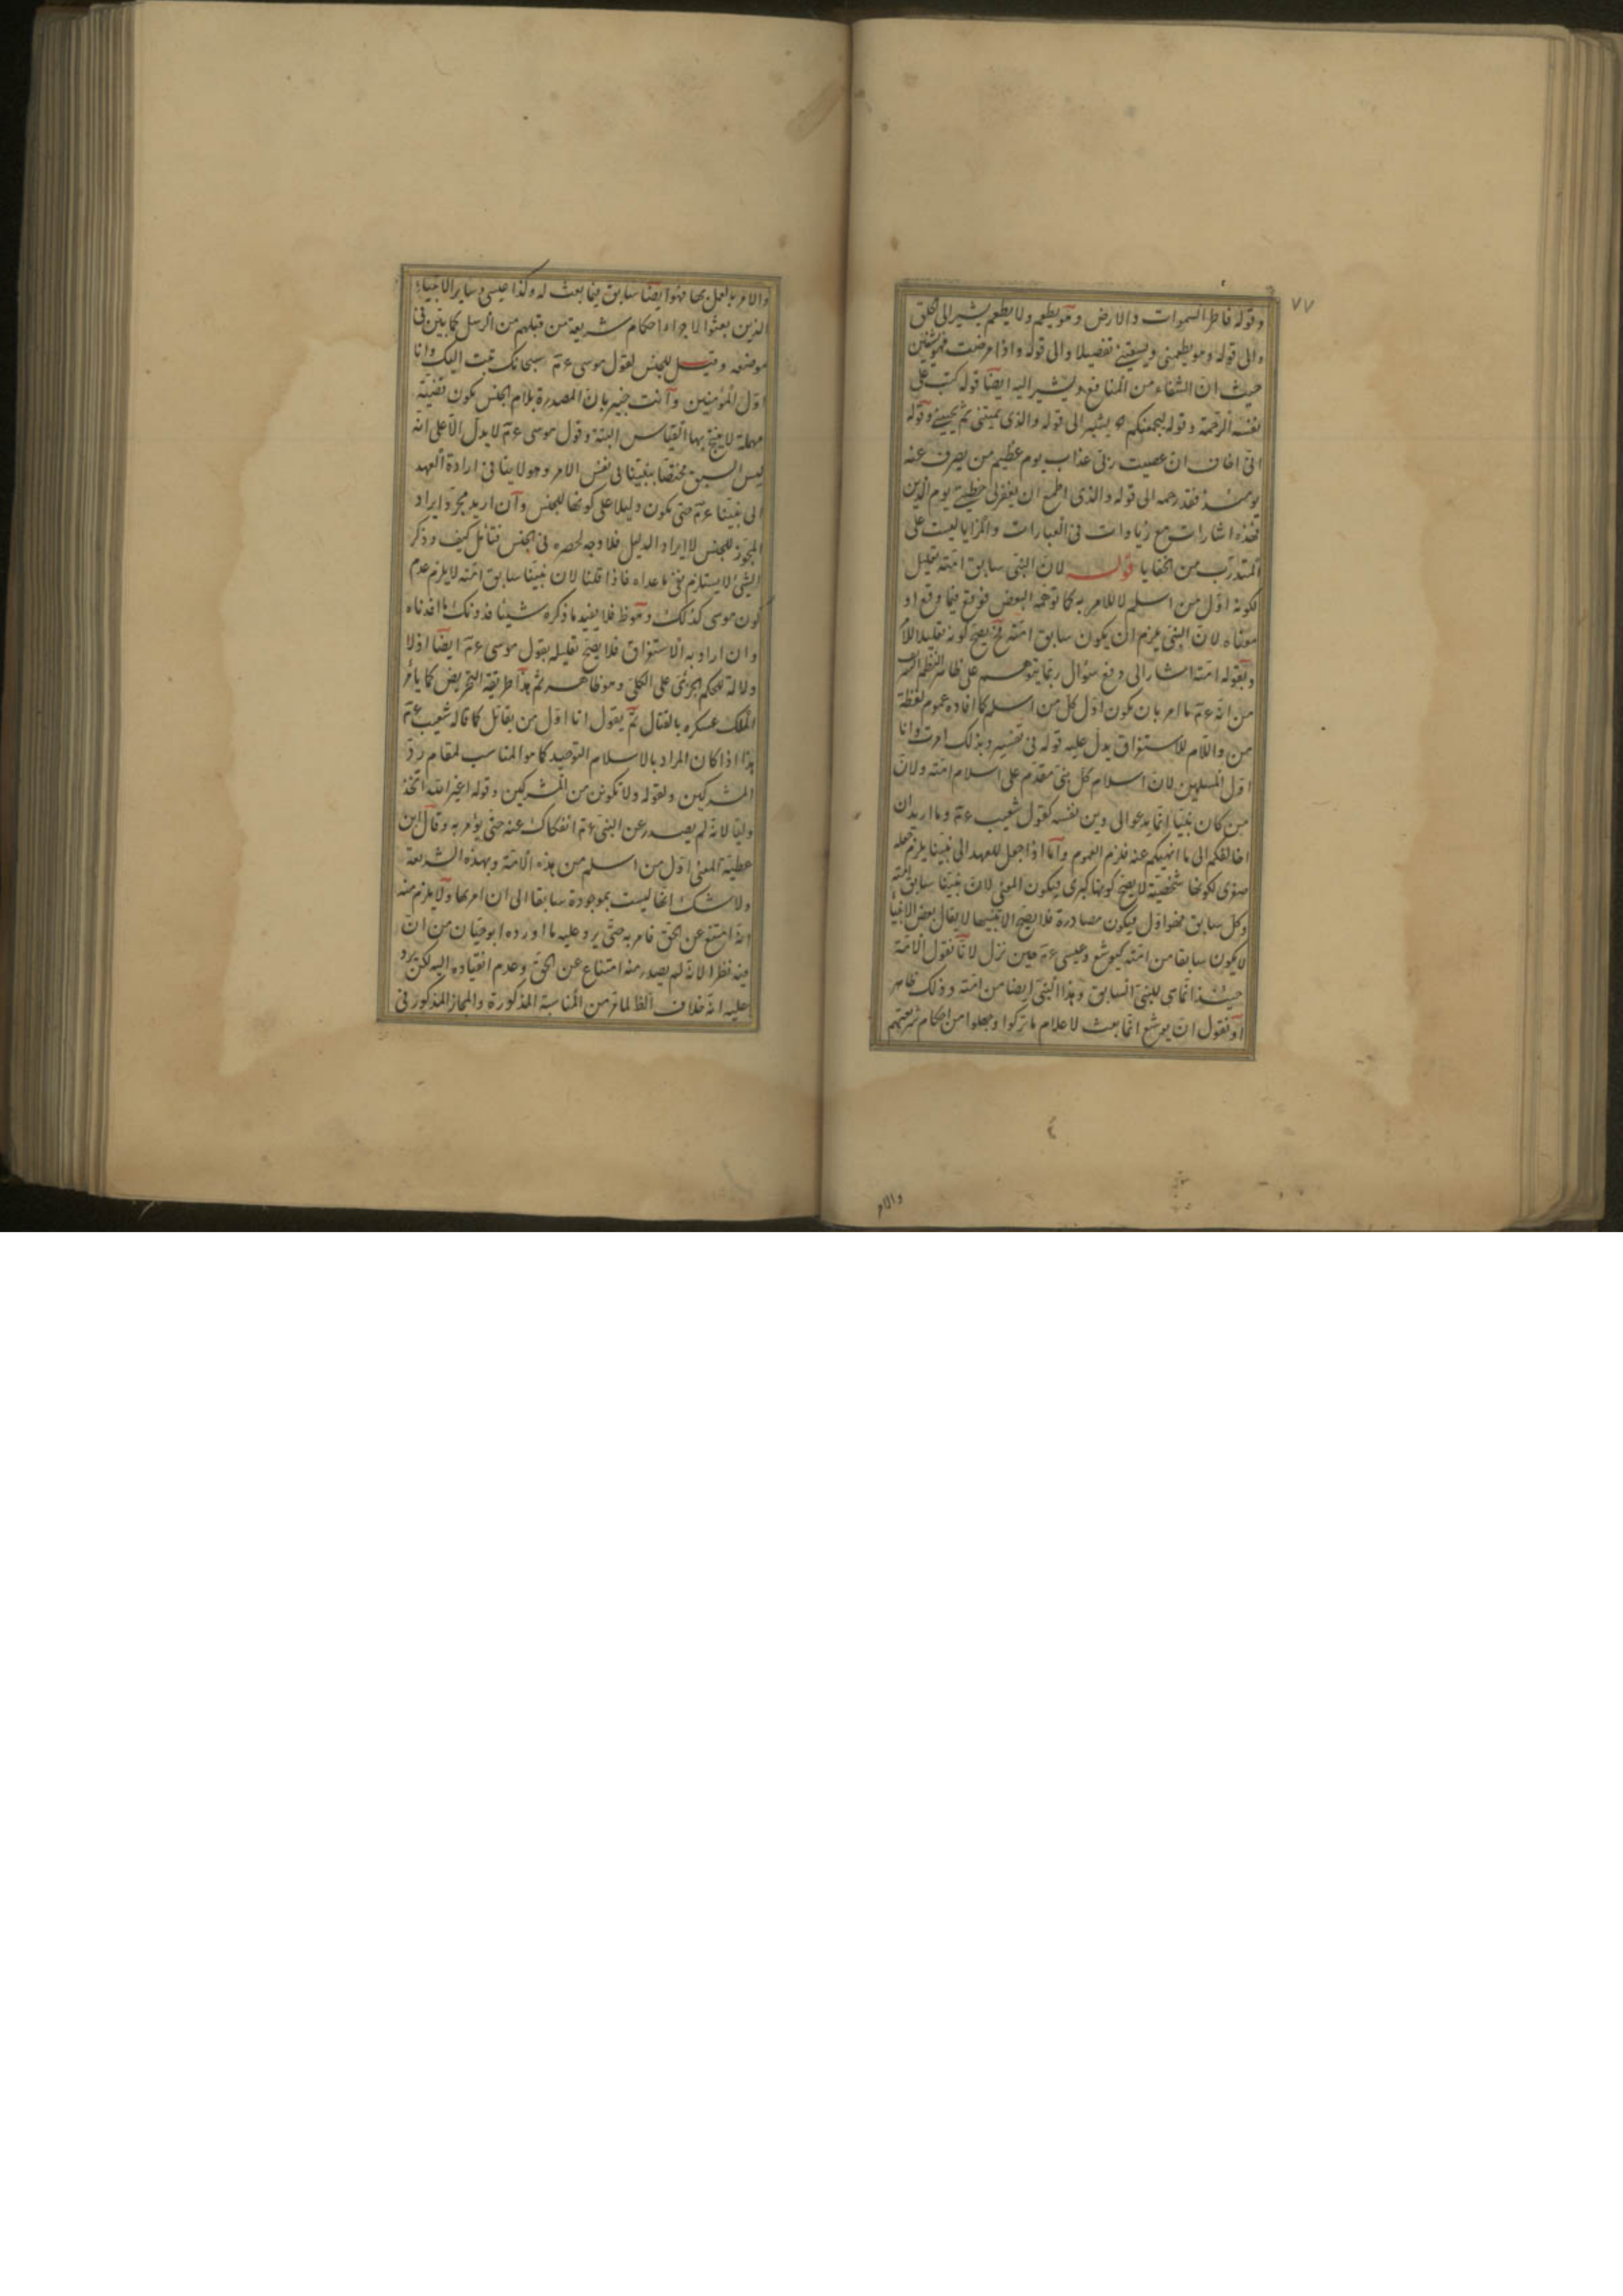 ٧٧
وقوله فاطر السموات والارض وهو يطعم ولا يطعم يشير الى خلق
والى قوله وهو يطعمنى ويسقين تفصيلا والى قوله واذا مرضت فهو يشفين
حيث ان الشفاء من المنافع ويشير اليه ايضا قوله كتب على
نفسه الرحمة وقوله ليجمعنكم يشير الى قوله والذى يميتنى ثم يحيين وقوله
انى اخاف ان عصيت ربى عذاب يوم عظيم من يصرف عنه
يومئذ فقد رحمه الى قوله والذى اطمع ان يغفر لى خطيئتى يوم الدين
فهذه اشارات مع زيادات فى العبارات والمزايا ليست على
المتدرب من الخفايا قوله لان النبى سابق امته تعليل
لكونه اول من اسلم لا للامر به كما توهمه البعض فوقع فيما وقع او
معناه لان النبى يلزم ان يكون سابق امته فح يصح كونه تعليلا للامر
وبقوله امته اشار الى دفع سؤال ربما يتوهم على ظاهر النظم الشريف
من انه ءم ما امر بان يكون اول كل من اسلم كما افاده عموم لفظة
من واللام للاستغراق يدل عليه قوله فى تفسير وبذلك امرت وانا
اول المسلمين لان اسلام كل نبى مقدم على اسلام امته ولان
من كان نبيا انما يدعو الى دين نفسه كقول شعيب ءم وما اريد ان
اخالفكم الى ما انهيكم عنه فلزم العموم واما اذا جعل للعهد الى نبينا يلزم جعله
صغرى لكونها شخصية لا يصح كونها كبرى فيكون المعنى لان نبينا سابق امته
وكل سابق فهو اول فيكون مصادرة فلا يصح الا تنبيها لا يقال بعض الانبياء
لا يكون سابقا من امته كيوشع وعيسى ءم حين نزل لانا نقول الامة
حينئذ انما هى للنبى السابق وهذا النبى ايضا من امته وذلك ظاهر
او نقول ان يوشع انما بعث لاعلام ما تركوا وجعلوا من احكام شريعتهم
والامر
والامر بالعمل بها فهو ايضا سابق فيما بعث له وكذا عيسى وساير الانبياء
الذين بعثوا لاجراء احكام شريعة من قبلهم من الرسل كما بين فى
موضعه وقيل للجنس لقول موسى ءم سبحانك تبت اليك وانا
اول المؤمنين وانت خبير بان المصدرة بلام الجنس يكون قضية
مهملة لا ينتج بها القياس البتة وقول موسى ءم لا يدل الا على انه
ليس السبق مختصا بنبينا فى نفس الامر وهو لا ينافى ارادة العهد
الى نبينا ءم حتى يكون دليلا على كونها للجنس وان اريد مجرد ايراد
المجوز للجنس لا ايراد الدليل فلا وجه لحصره فى الجنس فتأمل كيف وذكر
الشئ لا يستلزم نفى ما عداه فاذا قلنا لان نبينا سابق امته لا يلزم عدم
كون موسى كذلك وهو ظ فلا يفيد ما ذكره شيئا فدونك ما افدناه
وان اراد به الاستغراق فلا يصح تعليله بقول موسى ءم ايضا اذ لا
دلالة للحكم الجزئى على الكلى وهو ظاهر ثم هذا طريقة التحريض كما يأمر
الملك عسكره بالقتال ثم يقول انا اول من يقاتل كما قاله شعيب ءم
هذا اذا كان المراد بالاسلام التوحيد كما هو المناسب لمقام رد
المشركين ولقوله ولا تكونن من المشركين وقوله اغير الله اتخذ
وليا لانه لم يصدر عن النبى ءم انفكاك عنه حتى يؤمر به وقال ابن
عطية المعنى اول من اسلم من هذه الامة وبهذه الشريعة
ولا شك انها ليست بموجودة سابقا الى ان امر بها ولا يلزم منه
انه امتنع عن الحق فامر به حتى يرد عليه ما اورده ابو حيان من ان
فيه نظرا لانه لم يصدر منه امتناع عن الحق وعدم انقياده اليه لكن يرد
عليه انه خلاف الظ لما مر من المناسبة المذكورة والمجاز المذكور فى